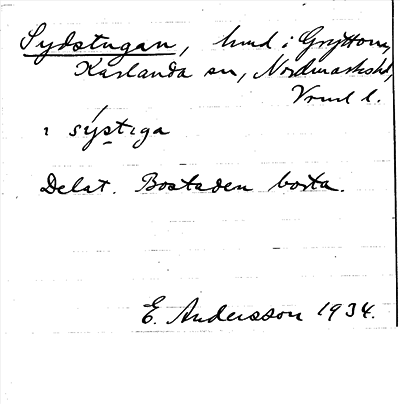 Sydstugan, hmd i Gryttom,
Karlanda sn, Nordmarks hd,
Vrml l.
i sýstiga
Delat. Bostaden borta.
E. Andersson 1934.